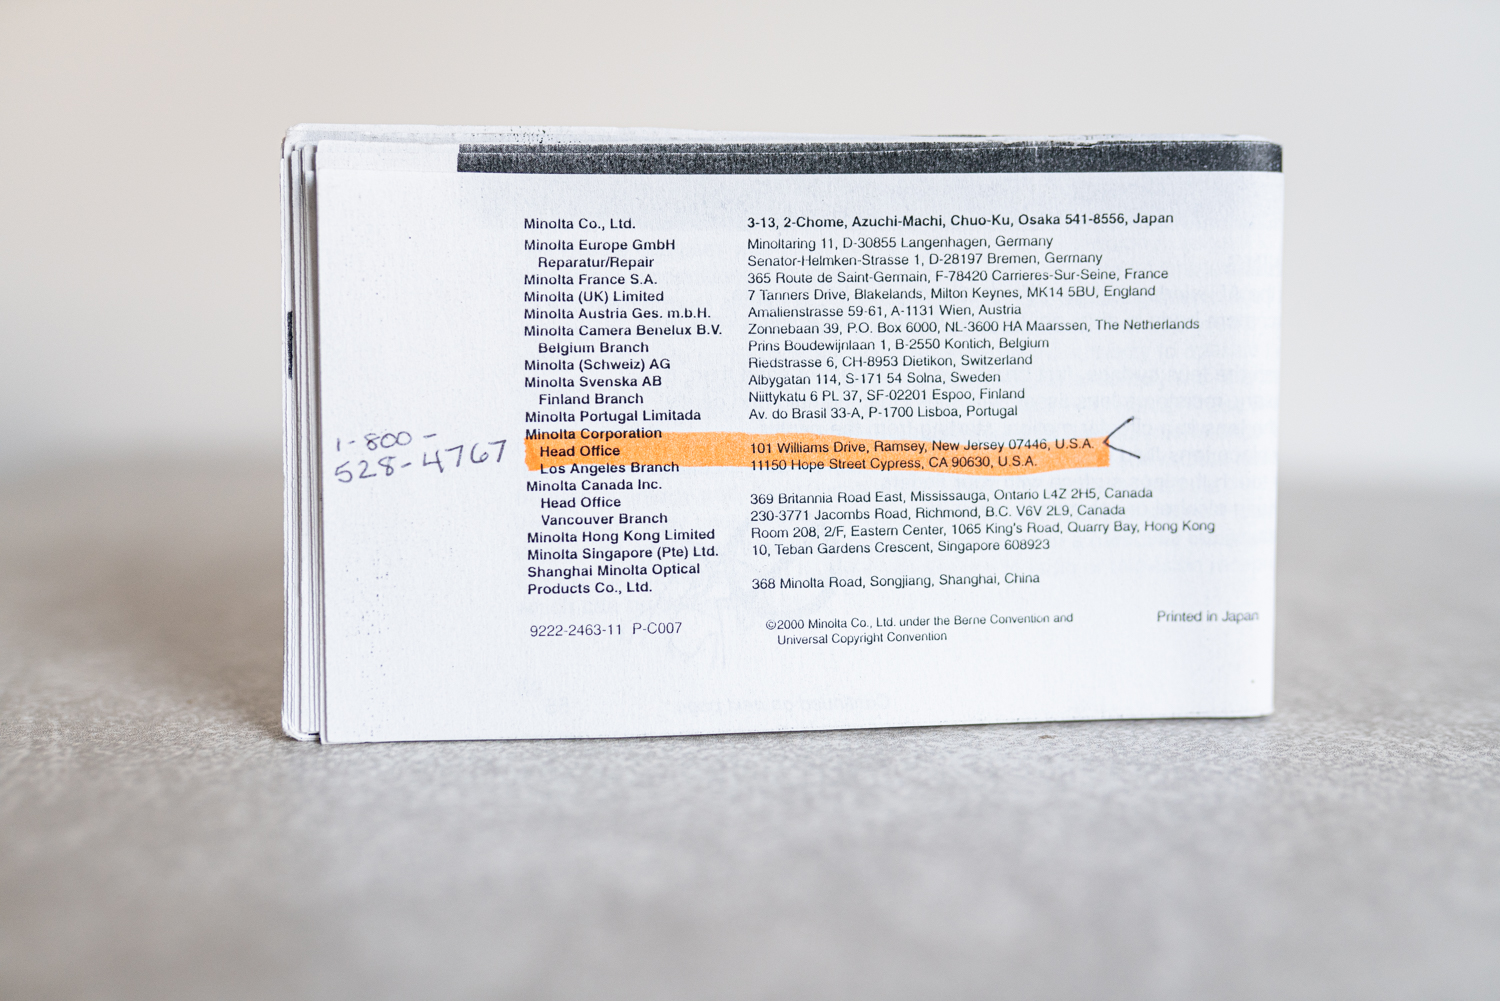 Minolta Co., Ltd. 3-13, 2-Chome, Azuchi-Machi, Chuo-Ku, Osaka 541-8556, Japan
Minolta Europe GmbH Minoltaring 11, D-30855 Langenhagen, Germany
Reparatur/Repair Senator-Helmken-Strasse 1, D-28197 Bremen, Germany
Minolta France S.A. 365 Route de Saint-Germain, F-78420 Carrieres-Sur-Seine, France
Minolta (UK) Limited 7 Tanners Drive, Blakelands, Milton Keynes, MK14 5BU, England
Minolta Austria Ges. m.b.H. Amalienstrasse 59-61, A-1131 Wien, Austria
Minolta Camera Benelux B.V. Zonnebaan 39, P.O. Box 6000, NL-3600 HA Maarssen, The Netherlands
Belgium Branch Prins Boudewijnlaan 1, B-2550 Kontich, Belgium
Minolta (Schweiz) AG Riedstrasse 6, CH-8953 Dietikon, Switzerland
Minolta Svenska AB Albygatan 114, S-171 54 Solna, Sweden
Finland Branch Niittykatu 6 PL 37, SF-02201 Espoo, Finland
Minolta Portugal Limitada Av. do Brasil 33-A, P-1700 Lisboa, Portugal
Minolta Corporation
1-800-
528-4767
Head Office 101 Williams Drive, Ramsey, New Jersey 07446, U.S.A.
Los Angeles Branch 11150 Hope Street Cypress, CA 90630, U.S.A.
Minolta Canada Inc.
Head Office 369 Britannia Road East, Mississauga, Ontario L4Z 2H5, Canada
Vancouver Branch 230-3771 Jacombs Road, Richmond, B.C. V6V 2L9, Canada
Minolta Hong Kong Limited Room 208, 2/F, Eastern Center, 1065 King's Road, Quarry Bay, Hong Kong
Minolta Singapore (Pte) Ltd. 10, Teban Gardens Crescent, Singapore 608923
Shanghai Minolta Optical
Products Co., Ltd. 368 Minolta Road, Songjiang, Shanghai, China
9222-2463-11 P-C007 ©2000 Minolta Co., Ltd. under the Berne Convention and Printed in Japan
Universal Copyright Convention